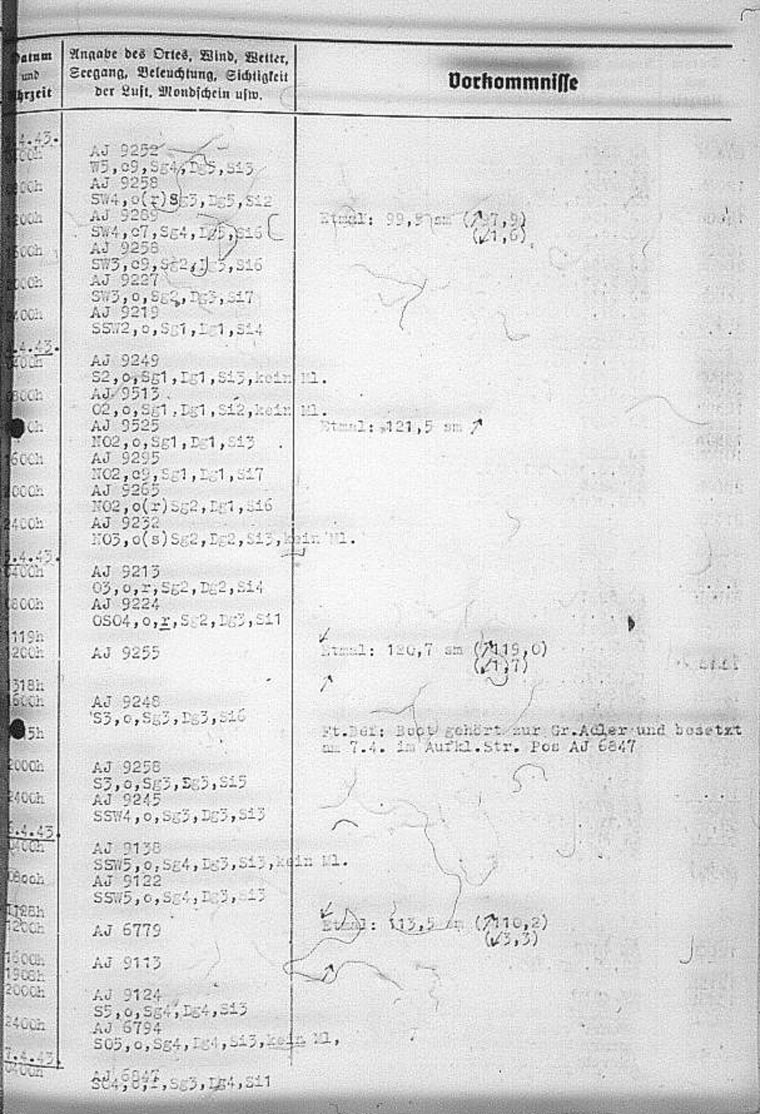 Datum und Uhrzeit
Angabe des Ortes, Wind, Wetter, Seegang, Beleuchtung, Sichtigkeit der Luft, Mondschein usw.
Vorkommnisse
.4.43.
AJ 9252
W5,c9,Sg4,Dg5,Si3
AJ 9258
SW4,o(r)Sg3,Dg5,Si2
1200h AJ 9289 Etmal: 99,5 sm (↗97,9)
SW4,c7,Sg4,Dg5,Si6 (↙1,6)
AJ 9258
SW3,c9,Sg2,Dg3,Si6
AJ 9227
SW3,o,Sg2,Dg3,Si7
2400h AJ 9219
SSW2,o,Sg1,Dg1,Si4
.4.43.
0400h AJ 9249
S2,o,Sg1,Dg1,Si3,kein Ml.
0800h AJ 9513
O2,o,Sg1,Dg1,Si2,kein Ml.
0h AJ 9525 Etmal: 121,5 sm ↗
NO2,o,Sg1,Dg1,Si3
1600h AJ 9295
NO2,c9,Sg1,Dg1,Si7
2000h AJ 9265
NO2,o(r)Sg2,Dg1,Si6
2400h AJ 9232
NO3,o(s)Sg2,Dg2,Si3,kein Ml.
5.4.43.
0400h AJ 9213
O3,o,r,Sg2,Dg2,Si4
0800h AJ 9224
OSO4,o,r,Sg2,Dg3,Si1
1119h ↙
1200h AJ 9255 Etmal: 120,7 sm (↗119,0)
(↙1,7)
1318h ↗
1600h AJ 9248
S3,o,Sg3,Dg3,Si6
5h Ft.Bef: Boot gehört zur Gr.Adler und besetzt
am 7.4. im Aufkl.Str. Pos AJ 6847
2000h AJ 9258
S3,o,Sg3,Dg3,Si5
2400h AJ 9245
SSW4,o,Sg3,Dg3,Si3
6.4.43.
0400h AJ 9138
SSW5,o,Sg4,Dg3,Si3,kein Ml.
0800h AJ 9122
SSW5,o,Sg4,Dg3,Si3
1128h ↙
1200h AJ 6779 Etmal: 113,5 sm (↗110,2)
(↙3,3)
1600h AJ 9113
1908h ↗
2000h AJ 9124
S5,o,Sg4,Dg4,Si3
2400h AJ 6794
SO5,o,Sg4,Dg4,Si3,kein Ml,
7.4.43.
0400h AJ 6847
SO4,o,r,Sg3,Dg4,Si1